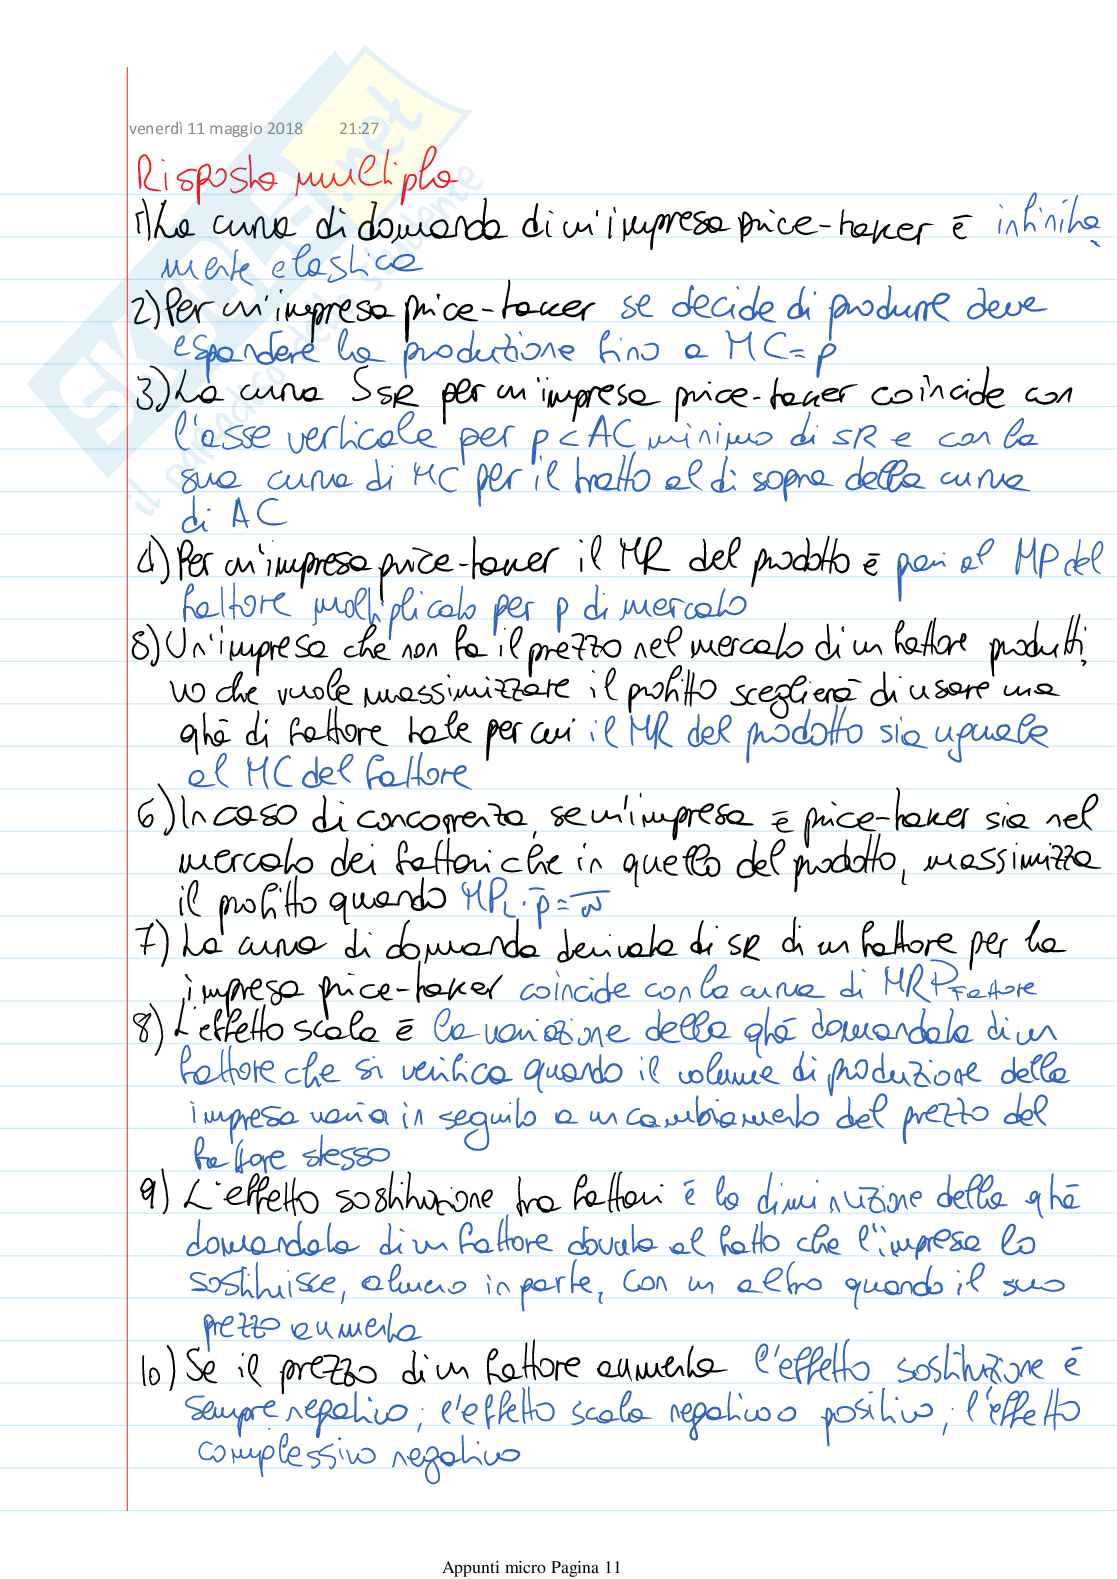 venerdì 11 maggio 2018 21:27
Risposta multipla
1) La curva di domanda di un'impresa price-taker è infinita
mente elastica
2) Per un'impresa price-taker se decide di produrre deve
espandere la produzione fino a MC=p
3) La curva SSR per un'impresa price-taker coincide con
l'asse verticale per p<AC minimo di SR e con la
sua curva di MC per il tratto al di sopra della curva
di AC
4) Per un'impresa price-taker il MR del prodotto è pari al MP del
fattore moltiplicato per p di mercato
5) Un'impresa che non fa il prezzo nel mercato di un fattore produtti,
vo che vuole massimizzare il profitto sceglierà di usare una
qtà di fattore tale per cui il MR del prodotto sia uguale
al MC del fattore
6) In caso di concorrenza, se un'impresa è price-taker sia nel
mercato dei fattori che in quello del prodotto, massimizza
il profitto quando MPL·p̄=w̄
7) La curva di domanda derivata di SR di un fattore per la
impresa price-taker coincide con la curva di MRPFattore
8) L'effetto scala è la variazione della qtà domandata di un
fattore che si verifica quando il volume di produzione della
impresa varia in seguito a un cambiamento del prezzo del
fattore stesso
9) L'effetto sostituzione tra fattori è la diminuzione della qtà
domandata di un fattore dovuta al fatto che l'impresa lo
sostituisce, almeno in parte, con un altro quando il suo
prezzo aumenta
10) Se il prezzo di un fattore aumenta l'effetto sostituzione è
sempre negativo; l'effetto scala negativo o positivo; l'effetto
complessivo negativo
Appunti micro Pagina 11